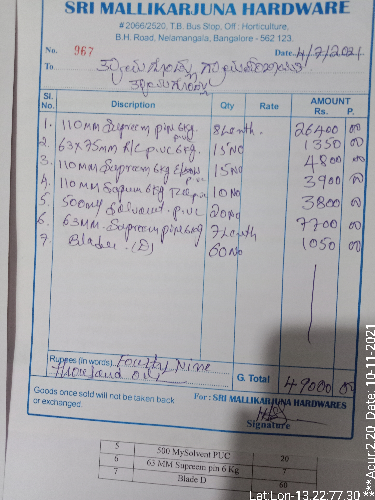 SRI MALLIKARJUNA HARDWARE
# 2066/2520, T.B. Bus Stop, Off : Horticulture,
B.H. Road, Nelamangala, Bangalore - 562 123.
No. 967 Date. 4/7/2021
To
Sl. No. Discription Qty Rate AMOUNT Rs. P.
1. 110MM Supreem pipe 6kg. 8 Lenth. 26400 00
2. 63x75mm R/C pvc 6kg. 15 No 1350 00
3. 110MM Supreem 6kg Elbow pvc 15 No 4800 00
4. 110MM 6kg pvc 10 No 3900 00
5. 500mg Solvent. pvc 20 No 3800 00
6. 63MM Supreem pipe 6kg 7 Lenth 7700 00
7. Blade (D) 60 No 1050 00
Rupees (in words) Fourty Nine
Thousand only
G. Total 49000 00
Goods once sold will not be taken back
or exchanged.
For : SRI MALLIKARJUNA HARDWARES
Signature
5 500 MySolvent PUC 20
6 63 MM Supreem pin 6 Kg 7
7 Blade D 60
Lat,Lon-13.22,77.30 ***Acur:2.20 Date: 10-11-2021